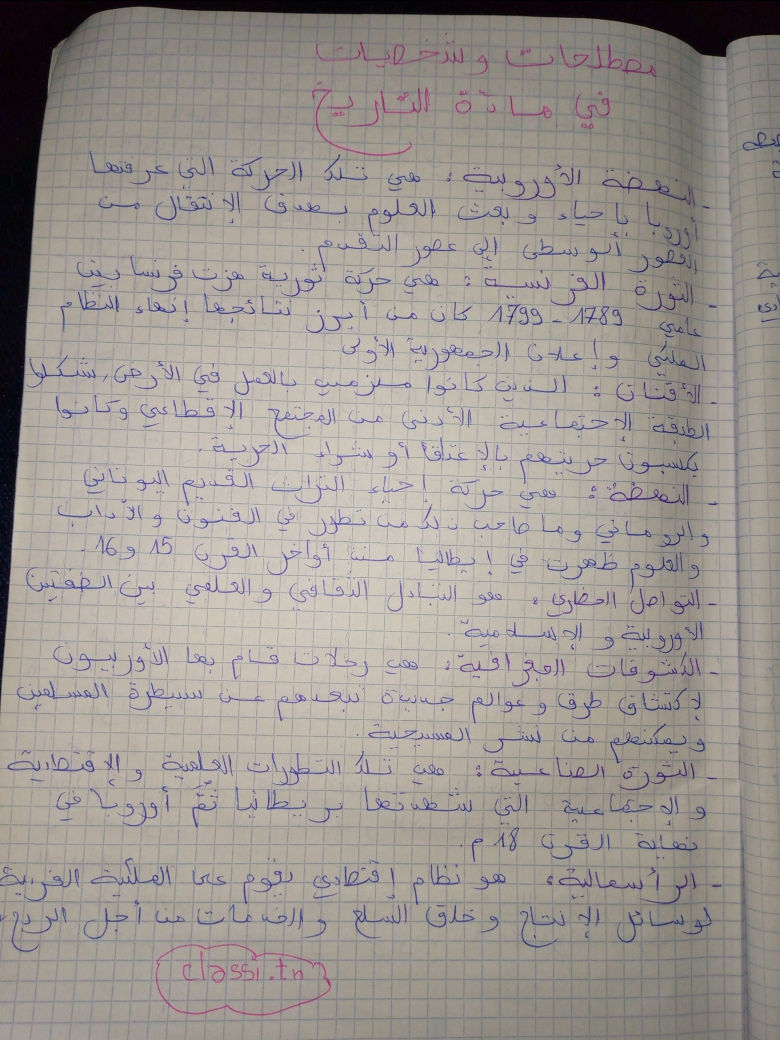 مصطلحات وشخصيات
في مادة التاريخ
- النهضة الأوروبية: هي تلك الحركة التي عرفتها
أوروبا بإحياء وبعث العلوم بهدف الإنتقال من
العصور الوسطى إلى عصور التقدم.
- الثورة الفرنسية: هي حركة ثورية هزت فرنسا بين
عامي 1789 - 1799 كان من أبرز نتائجها إنهاء النظام
الملكي وإعلان الجمهورية الأولى
- الأقنان: الذين كانوا ملزمين بالعمل في الأرض، شكلوا
الطبقة الإجتماعية الأدنى من المجتمع الإقطاعي وكانوا
يكسبون حريتهم بالإعتاق أو شراء الحرية.
- النهضة: هي حركة إحياء التراث القديم اليوناني
والروماني وما صاحب ذلك من تطور في الفنون والآداب
والعلوم ظهرت في إيطاليا من أواخر القرن 15 و16.
- التواصل الحضاري: هو التبادل الثقافي والعلمي بين الضفتين
الأوروبية والإسلامية.
- الكشوفات الجغرافية: هي رحلات قام بها الأوربيون
لإكتشاق طرق وعوالم جديدة تبعدهم عن سيطرة المسلمين
ويمكنهم من نشر المسيحية.
- الثورة الصناعية: هي تلك التطورات العلمية والإقتصادية
والإجتماعية التي شهدتها بريطانيا ثُمَّ أوروبا في
نهاية القرن 18م.
- الرأسمالية: هو نظام إقتصادي يقوم على الملكية الفردية
لوسائل الإنتاج وخلق السلع والخدمات من أجل الربح.
classi.tn